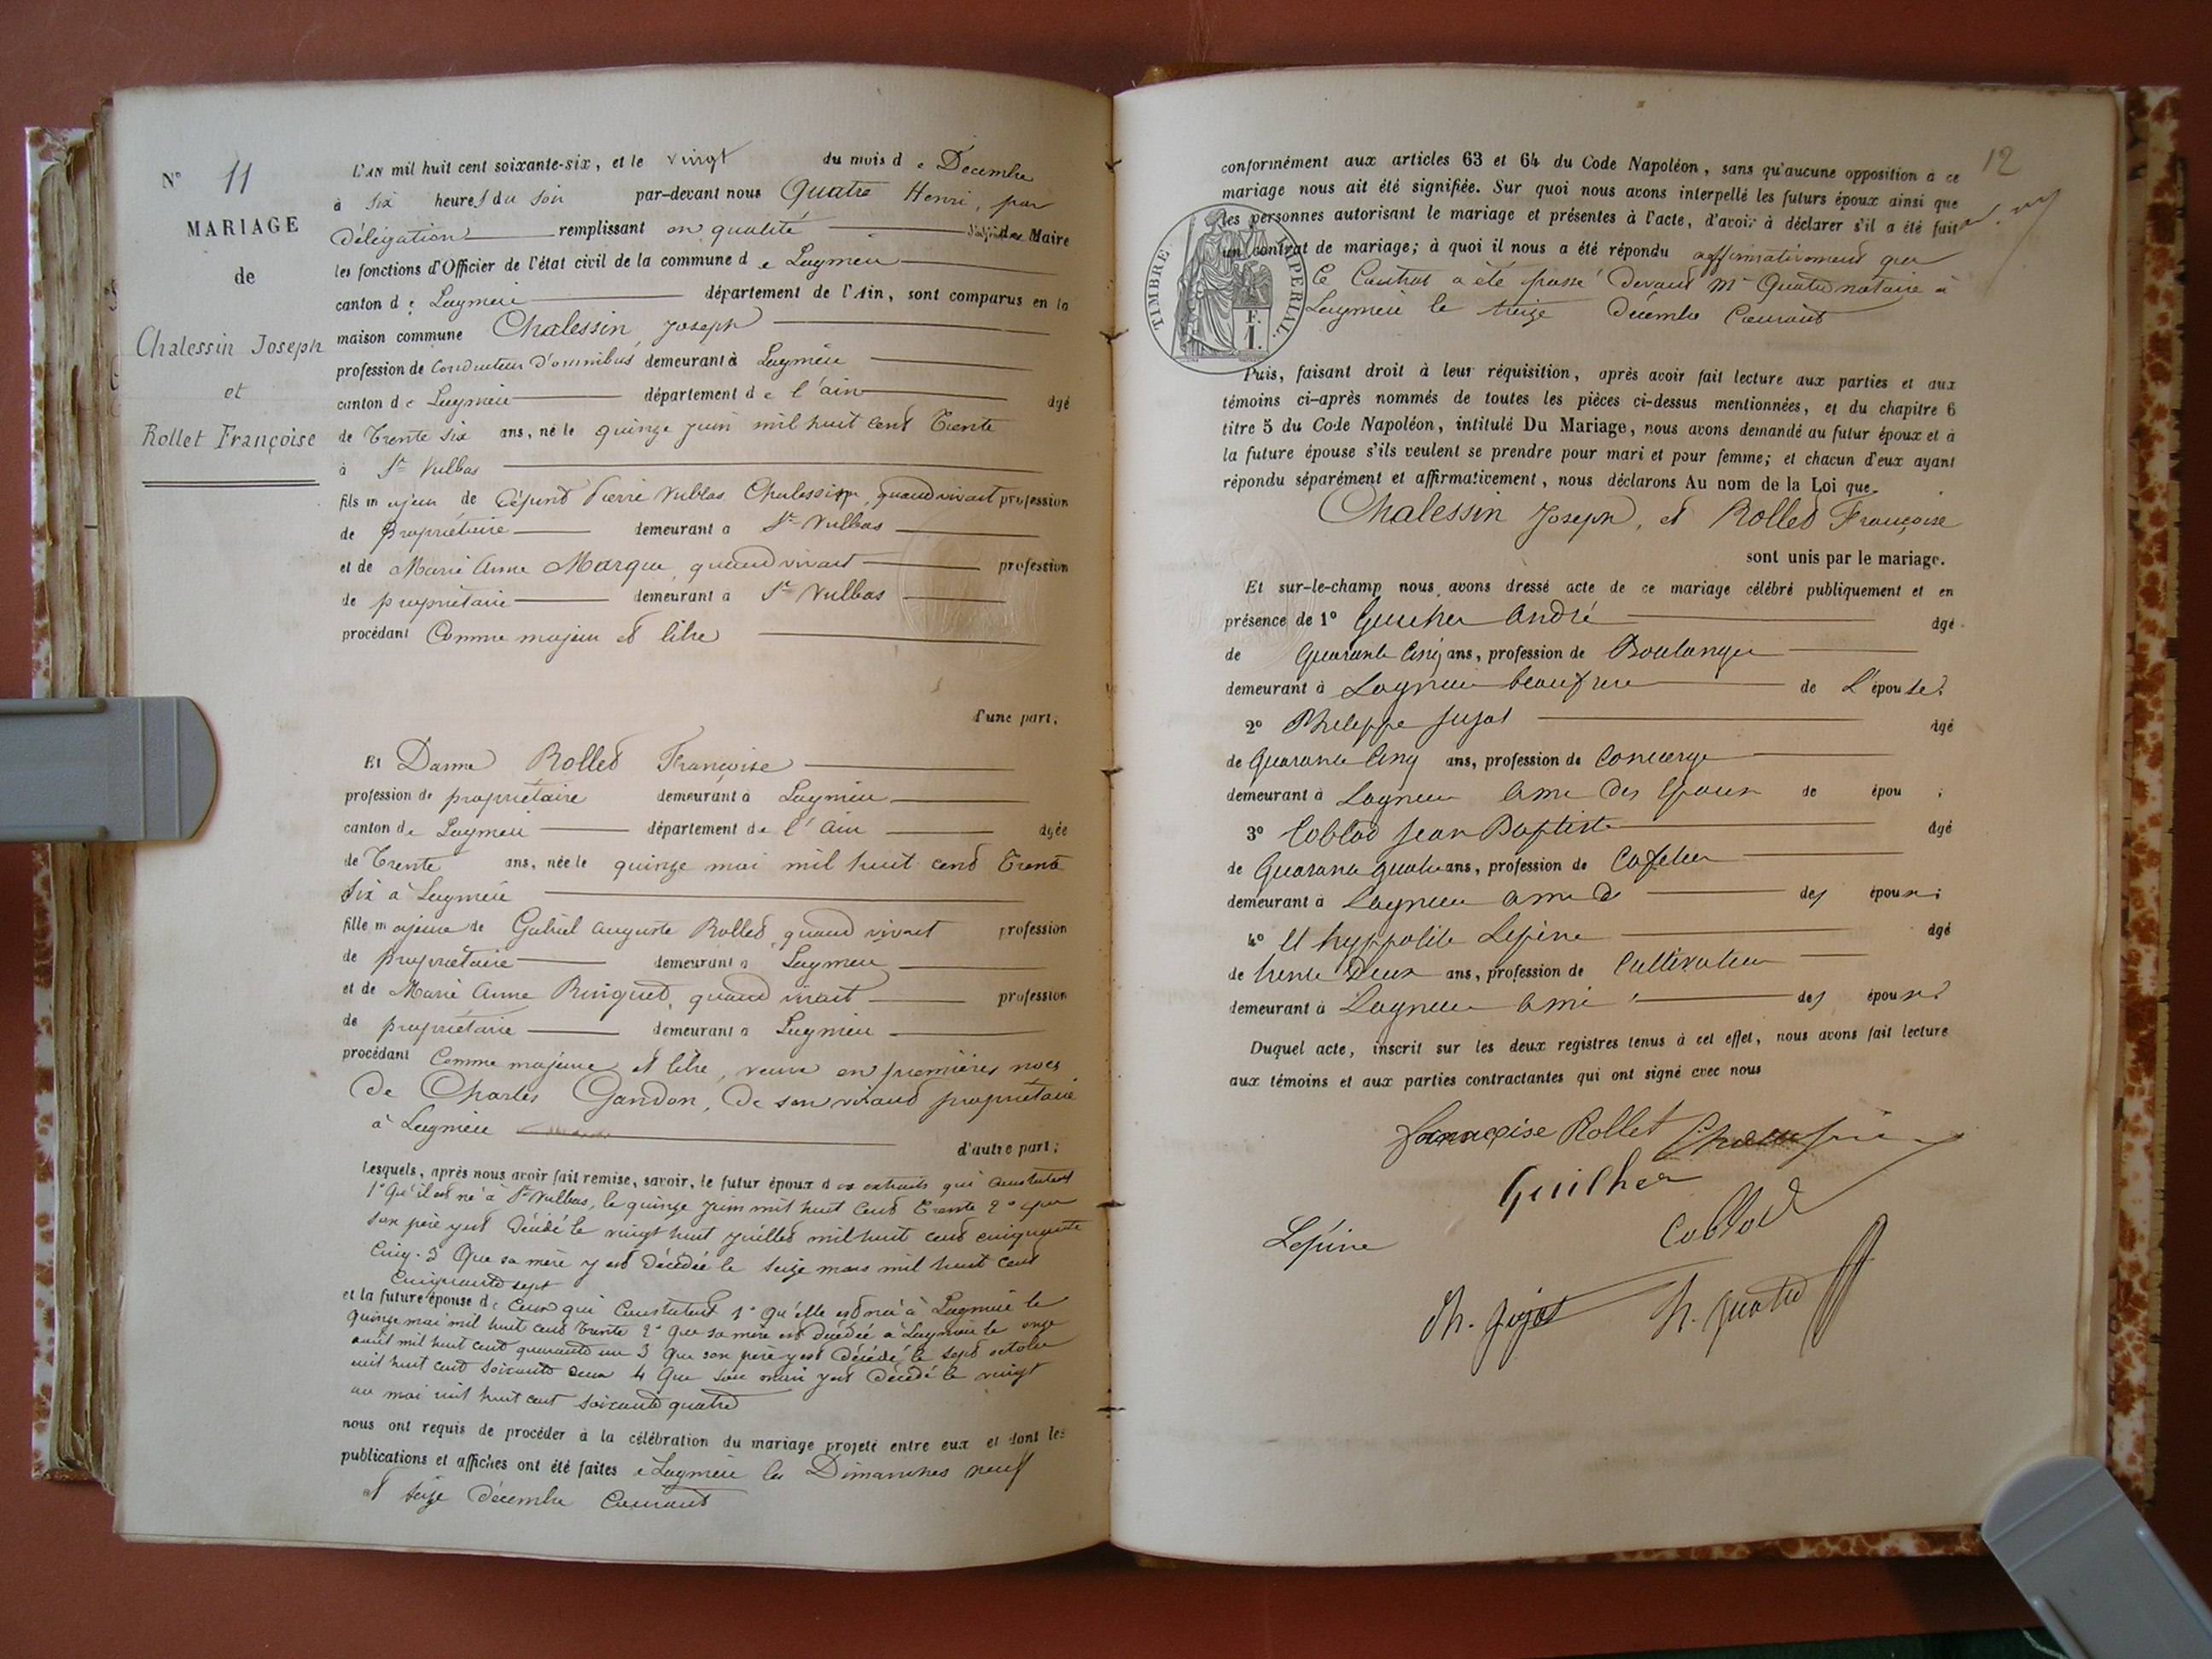 N° 11
MARIAGE
de
Chalessin Joseph
et
Rollet Françoise
L'AN mil huit cent soixante-six, et le vingt du mois de Décembre
à six heures du soir par-devant nous Quatre Henri, par
Délégation remplissant en qualité Maire
les fonctions d'Officier de l'état civil de la commune de Lagnieu
canton de Lagnieu département de l'Ain, sont comparus en la
maison commune Chalessin Joseph
profession de Conducteur d'omnibus demeurant à Lagnieu
canton de Lagnieu département de l'ain âgé
de Trente six ans, né le quinze juin mil huit cent Trente
à St Vulbas
fils majeur de Défunt Pierre Vulbas Chalessin, quand vivait profession
de Propriétaire demeurant à St Vulbas
et de Marie Anne Marque, quand vivait profession
de propriétaire demeurant à St Vulbas
procédant Comme majeur et libre
d'une part;
Et Dame Rollet Françoise
profession de propriétaire demeurant à Lagnieu
canton de Lagnieu département de l'Ain âgée
de Trente ans, née le quinze mai mil huit cent Trente
six à Lagnieu
fille majeure de Gabriel Auguste Rollet, quand vivait profession
de propriétaire demeurant à Lagnieu
et de Marie Anne quand vivait profession
de propriétaire demeurant à Lagnieu
procédant Comme majeure et libre, veuve en premières noces
de Charles Gandon, de son vivant propriétaire
à Lagnieu
d'autre part;
Lesquels, après nous avoir fait remise, savoir, le futur époux des extraits qui constatent
1° Qu'il est né à St Vulbas, le quinze juin mil huit cent Trente 2° que
son père y est Décédé le vingt huit juillet mil huit cent cinquante
Cinq. 3 Que sa mère y est Décédée le seize mars mil huit cent
Cinquante sept
et la future épouse de Ceux qui Constatent 1° Qu'elle est née à Lagnieu le
quinze mai mil huit cent trente 2° Que sa mère est Décédée à Lagnieu le onze
avril mil huit cent quarante un 3 Que son père y est Décédé le sept octobre
mil huit cent soixante deux 4 Que son mari y est Décédé le vingt
un mai mil huit cent soixante quatre
nous ont requis de procéder à la célébration du mariage projeté entre eux et dont les
publications et affiches ont été faites à Lagnieu les Dimanches neuf
et seize décembre Courant
12
conformément aux articles 63 et 64 du Code Napoléon, sans qu'aucune opposition à ce
mariage nous ait été signifiée. Sur quoi nous avons interpellé les futurs époux ainsi que
les personnes autorisant le mariage et présentes à l'acte, d'avoir à déclarer s'il a été fait
un contrat de mariage; à quoi il nous a été répondu affirmativement que
le Contrat a été passé Devant Me Quatre notaire à
Lagnieu le treize Décembre Courant
TIMBRE IMPERIAL
F.
1.
Puis, faisant droit à leur réquisition, après avoir fait lecture aux parties et aux
témoins ci-après nommés de toutes les pièces ci-dessus mentionnées, et du chapitre 6
titre 5 du Code Napoléon, intitulé Du Mariage, nous avons demandé au futur époux et à
la future épouse s'ils veulent se prendre pour mari et pour femme; et chacun d'eux ayant
répondu séparément et affirmativement, nous déclarons Au nom de la Loi que
Chalessin Joseph, et Rollet Françoise
sont unis par le mariage.
Et sur-le-champ nous avons dressé acte de ce mariage célébré publiquement et en
présence de 1° Guicher André âgé
de Quarante Cinq ans, profession de Boulanger
demeurant à Lagnieu beaufrere de L'épouse;
2° Philippe Jujat âgé
de Quarante Cinq ans, profession de Concierge
demeurant à Lagnieu ami des Epoux de épou ;
3° Coblod Jean Baptiste âgé
de Quarante quatre ans, profession de Cafetier
demeurant à Lagnieu ami des époux;
4° Et hyppolite Lepine âgé
de trente Deux ans, profession de Cultivateur
demeurant à Lagnieu ami des époux.
Duquel acte, inscrit sur les deux registres tenus à cet effet, nous avons fait lecture
aux témoins et aux parties contractantes qui ont signé avec nous
françoise Rollet
Guicher
Coblod
Lépine
Ph. Jujat
h. Quatre